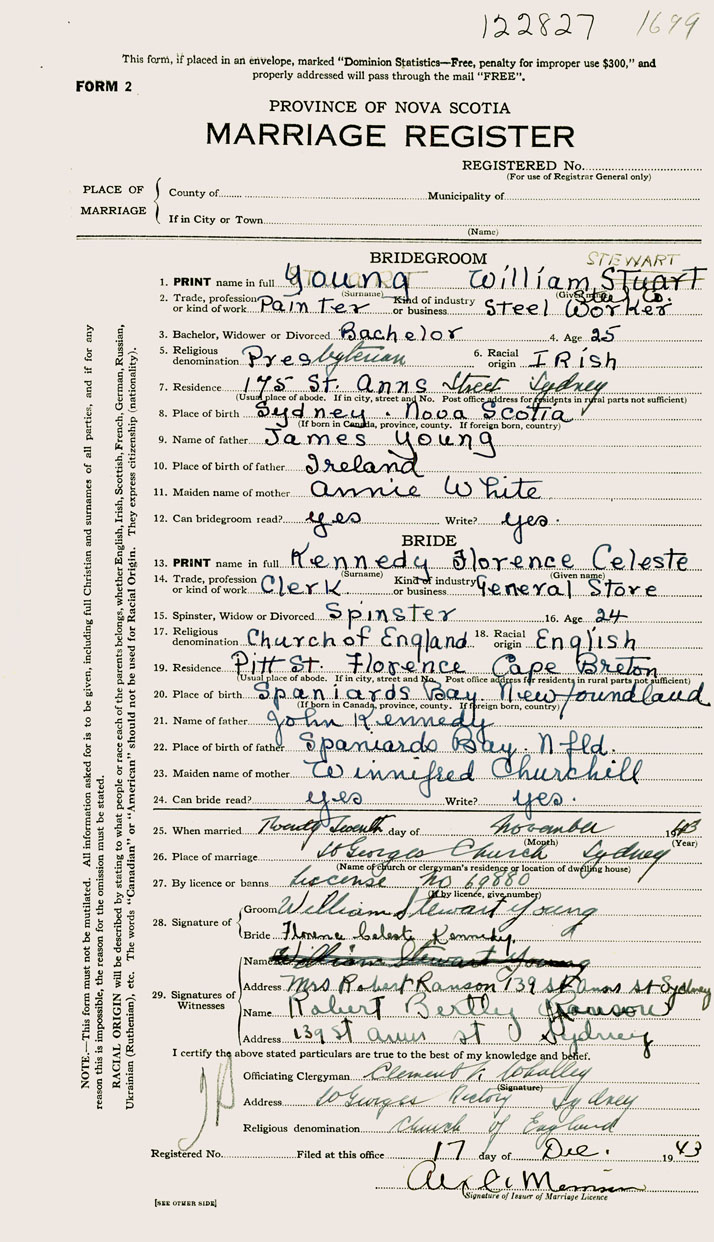 122827 1699
This form, if placed in an envelope, marked "Dominion Statistics—Free, penalty for improper use $300," and
properly addressed will pass through the mail "FREE".
FORM 2
PROVINCE OF NOVA SCOTIA
MARRIAGE REGISTER
REGISTERED No.
(For use of Registrar General only)
PLACE OF MARRIAGE
County of Municipality of
If in City or Town
(Name)
BRIDEGROOM
STEWART
1. PRINT name in full Young William Stuart
(Surname) (Given name)
2. Trade, profession or kind of work Painter Kind of industry or business Steel Worker
3. Bachelor, Widower or Divorced Bachelor 4. Age 25
5. Religious denomination Presbyterian 6. Racial origin IRish
7. Residence 175 St. Anns Street Sydney
(Usual place of abode. If in city, street and No. Post office address for residents in rural parts not sufficient)
8. Place of birth Sydney. Nova Scotia
(If born in Canada, province, county. If foreign born, country)
9. Name of father James Young
10. Place of birth of father Ireland
11. Maiden name of mother Annie White
12. Can bridegroom read? yes Write? yes.
BRIDE
13. PRINT name in full Kennedy Florence Celeste
(Surname) (Given name)
14. Trade, profession or kind of work Clerk Kind of industry or business General Store
15. Spinster, Widow or Divorced Spinster 16. Age 24
17. Religious denomination Church of England 18. Racial origin English
19. Residence Pitt St. Florence Cape Breton
(Usual place of abode. If in city, street and No. Post office address for residents in rural parts not sufficient)
20. Place of birth Spaniards Bay. Newfoundland
(If born in Canada, province, county. If foreign born, country)
21. Name of father John Kennedy
22. Place of birth of father Spaniards Bay. Nfld.
23. Maiden name of mother Winnifred Churchill
24. Can bride read? yes Write? yes.
25. When married Twenty Seventh day of November 1943
(Month) (Year)
26. Place of marriage St Georges Church Sydney
(Name of church or clergyman's residence or location of dwelling house)
27. By licence or banns License No
(If by licence, give number)
28. Signature of
Groom William Stewart Young
Bride Florence Celeste Kennedy.
29. Signatures of Witnesses
Name William Stewart Young
Address Mrs Robert Ranson 139 St Anns St Sydney
Name Robert Ranson
Address 139 St Anns St Sydney
I certify the above stated particulars are true to the best of my knowledge and belief.
Officiating Clergyman Clement Whalley
(Signature)
Address St Georges Rectory Sydney
Religious denomination Church of England
Registered No. Filed at this office 17 day of Dec. 1943
Signature of Issuer of Marriage Licence
[SEE OTHER SIDE]
NOTE.—This form must not be mutilated. All information asked for is to be given, including full Christian and surnames of all parties, and if for any
reason this is impossible, the reason for the omission must be stated.
RACIAL ORIGIN will be described by stating to what people or race each of the parents belongs, whether English, Irish, Scottish, French, German, Russian,
Ukrainian (Ruthenian), etc. The words "Canadian" or "American" should not be used for Racial Origin. They express citizenship (nationality).